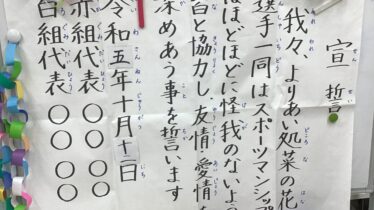 宣誓
我々、よりあい処菜の花
選手一同はスポーツマンシップ
ほどほどに怪我のないよう
皆と協力し友情・愛情を
深めあう事を誓います
令和五年十月
赤組代表 〇〇〇〇
白組代表 〇〇〇〇